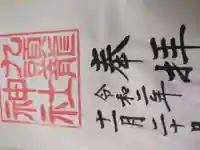 奉拝
令和二年
十一月二十日
九頭龍
神社